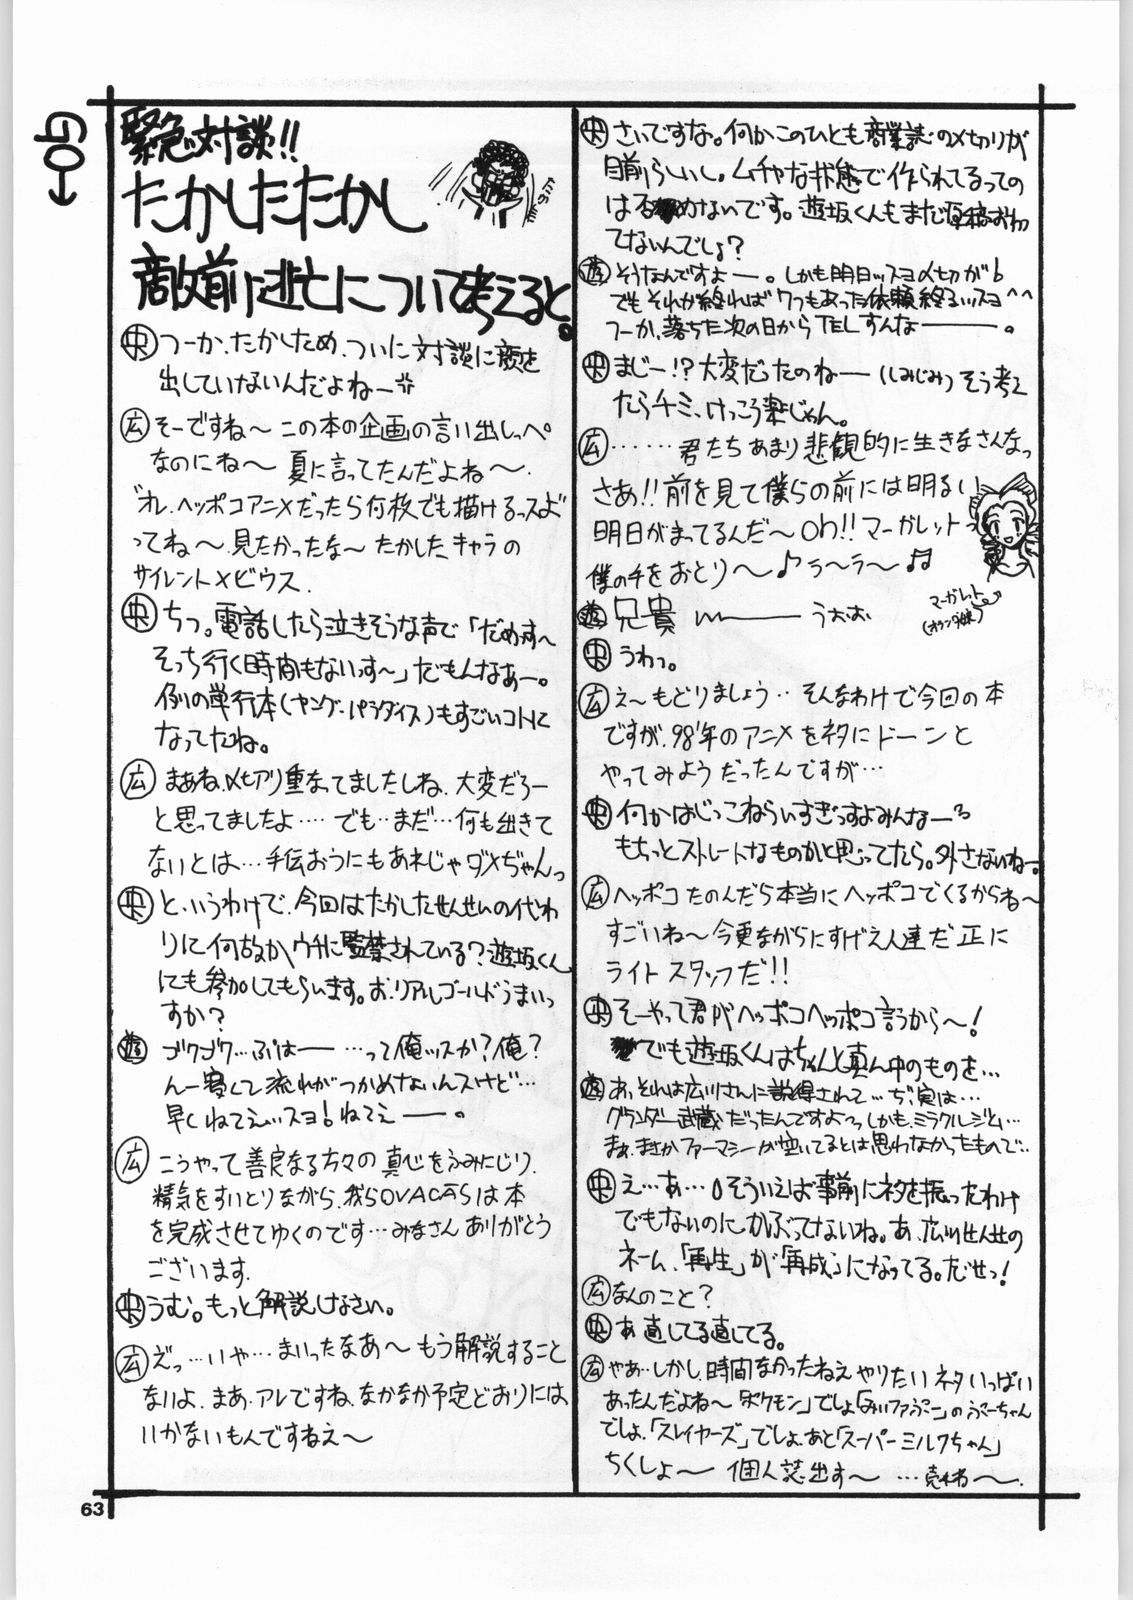 GO→
緊急対談!!
たかしたたかし
敵前逃亡について考えると。
央 つーか、たかしため、ついに対談に顔を
出していないんだよねー
広 そーですね〜この本の企画の言い出しっぺ
なのにね〜 夏に言ってたんだよね〜.
"オレ、ヘッポコアニメだったら何枚でも描けるっスよ"
ってね〜見たかったな〜たかした、キャラの
サイレントメビウス.
央 ちっ。電話したら泣きそうな声で「だめっす〜
そっち行く時間もないっす〜」だもんなあー。
例の単行本(ヤング・パラダイス)もすごいコトに
なってたね。
広 まあね、〆切り重なってましたしね、大変だろー
と思ってましたよ‥‥でも‥まだ…何も出きて
ないとは…手伝おうにもあれじゃダメぢゃんっ
央 というわけで、今回はたかしたせんせいの代わ
りに何故かウチに監禁されている?遊坂くん
にも参加してもらいます。お、リアルゴールドうまいっ
すか?
遊 ゴクゴク…ぷはーー …って俺ッスか?俺?
んー寝てて流れがつかめないんスけど…
早くねてえ…スヨ!ねてえーー。
広 こうやって善良なる方々の真心をふみにじり、
精気をすいとりながら、我らOVACASは本
を完成させてゆくのです…みなさんありがとう
ございます.
央 うむ。もっと解説しなさい。
広 えっ…いや…まいったなあ〜もう解説すること
ないよ.まあ、アレですね、なかなか予定どおりには
いかないもんですねえ〜
央 さいですな。何かこのひとも商業誌の〆切りが
目前らしいし。ムチャな状態で作られてるっての
は否めないです。遊坂くんもまだ原稿おわっ
てないんでしょ?
遊 そうなんですよー。しかも明日ッスヨ〆切が
でもそれが終れば7つもあった依頼終るッスヨ^^
フーか、落ちた次の日からTELすんなーー。
央 まじー!?大変だったのねー(しみじみ)そう考え
たらチミ、けっこう楽じゃん。
広 ‥‥‥君たちあまり悲観的に生きなさんなっ
さあ!!前を見て僕らの前には明るい
明日がまってるんだ〜Oh!!マーガレットっ
僕の手をおとり〜♪ラ〜ラ〜♬
マーガレット
(オランダ妹)
遊 兄貴ーー うおぉ
央 うわっ。
広 え〜もどりましょう‥そんなわけで今回の本
ですが、98'年のアニメをネタにドーンと
やってみようだったんですが…
央 何かはじっこねらいすぎっすよみんなー
もちっとストレートなものかと思ってたら。外さないねー。
広 ヘッポコたのんだら本当にヘッポコでくるからね〜
すごいね〜今更ながらにすげえ人達だ正に
ライトスタッフだ!!
央 そーやって君がヘッポコヘッポコ言うから〜!
でも遊坂くんはちゃんと真ん中のものを…
遊 あっそれは広川さんに説得されて…ぢ、実は…
グランダー武蔵だったんですよっっしかも、ミラクルジム…
まぁ、まさかファーマシーが空いてるとは思わなかったもので…
央 え…あ…そういえば事前にネタを振ったわけ
でもないのにかぶってないね。あ、広川せんせの
ネーム、「再生」が「再成」になってる。だせっ!
広 なんのこと?
央 あ 直してる直してる。
広 やぁ…しかし、時間なかったねえやりたいネタいっぱい
あったんだよね〜「ポケモン」でしょ「みいファぷー」のぷーちゃん
でしょ、「スレイヤーズ」でしょ、あと「スーパーミルクちゃん」
ちくしょ〜 個人誌出す〜 …売れね〜.
63